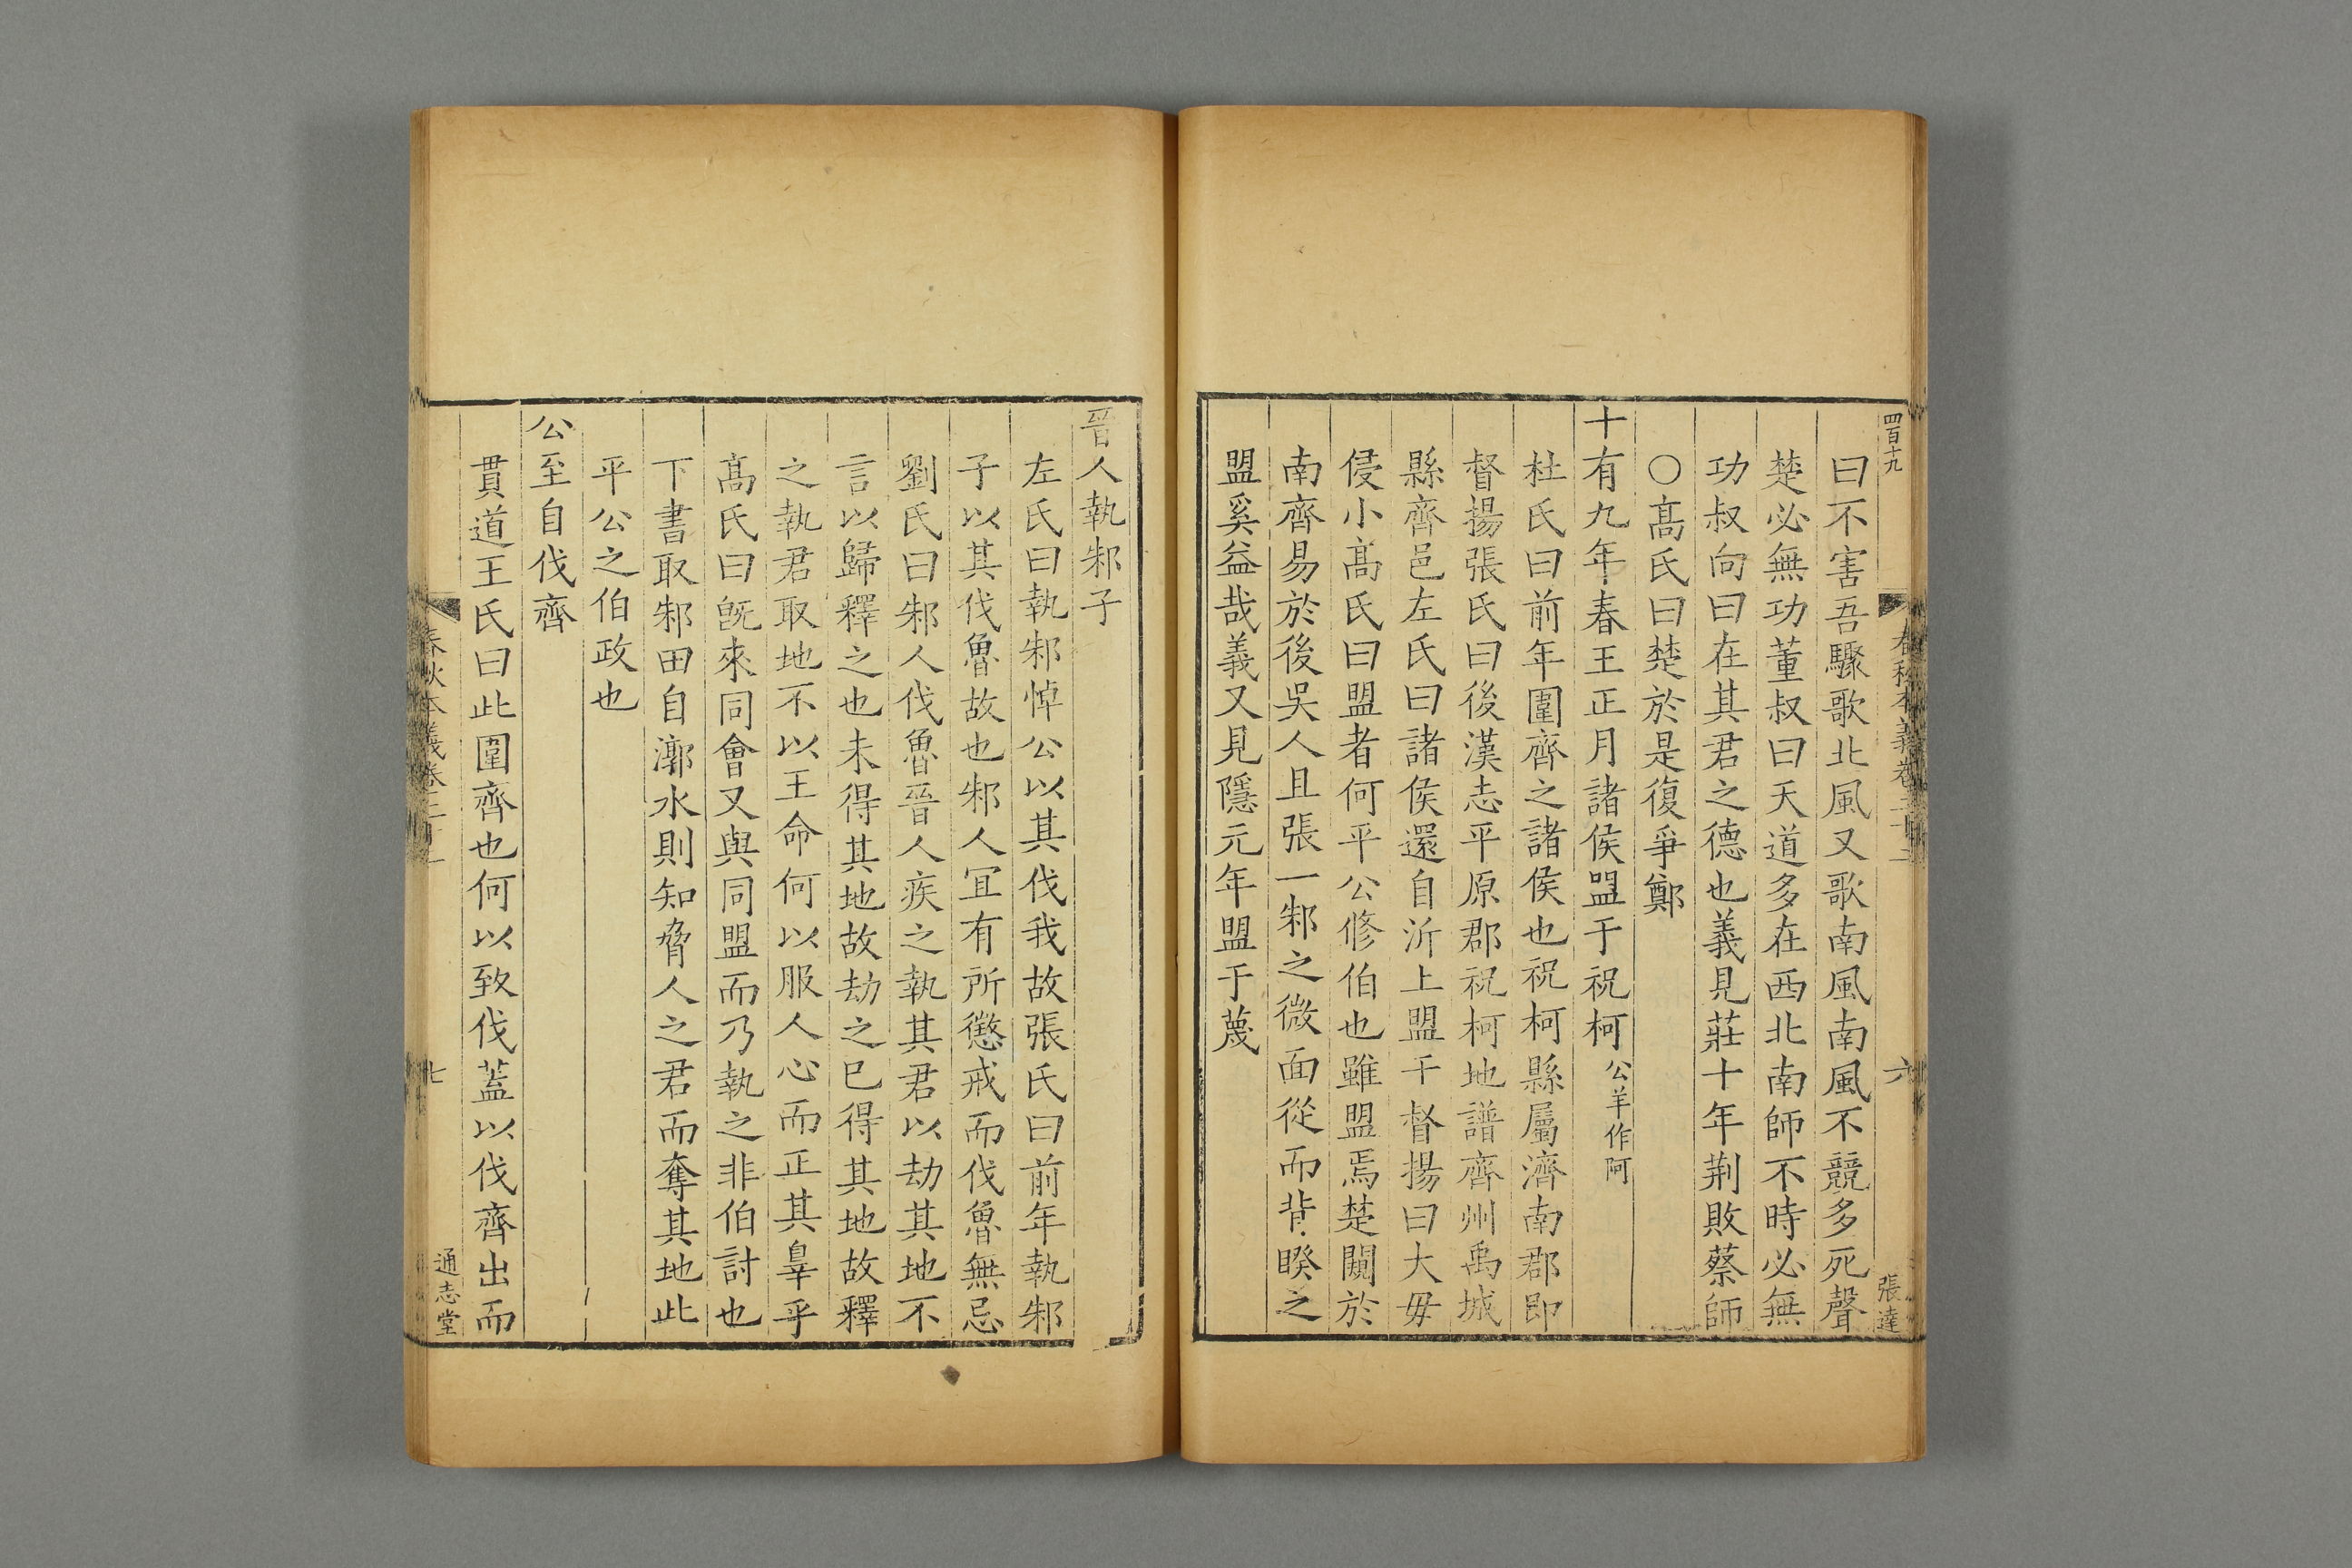 四百十九
春秋本義卷二十二
六
張達
曰不害吾驟歌北風又歌南風南風不競多死聲
楚必無功董叔曰天道多在西北南師不時必無
功叔向曰在其君之德也義見莊十年荆敗蔡師
○髙氏曰楚於是復爭鄭
十有九年春王正月諸侯盟于祝柯公羊作阿
杜氏曰前年圍齊之諸侯也祝柯縣屬濟南郡即
督揚張氏曰後漢志平原郡祝柯地譜齊州禹城
縣齊邑左氏曰諸侯還自沂上盟于督揚曰大毋
侵小髙氏曰盟者何平公修伯也雖盟焉楚闚於
南齊易於後吳人且張一邾之微面從而背睽之
盟奚益哉義又見隱元年盟于蔑
晉人執邾子
左氏曰執邾悼公以其伐我故張氏曰前年執邾
子以其伐魯故也邾人冝有所懲戒而伐魯無忌
劉氏曰邾人伐魯晉人疾之執其君以劫其地不
言以歸釋之也未得其地故劫之已得其地故釋
之執君取地不以王命何以服人心而正其辠乎
髙氏曰旣來同會又與同盟而乃執之非伯討也
下書取邾田自漷水則知脅人之君而奪其地此
平公之伯政也
公至自伐齊
貫道王氏曰此圍齊也何以致伐蓋以伐齊出而
七
通志堂